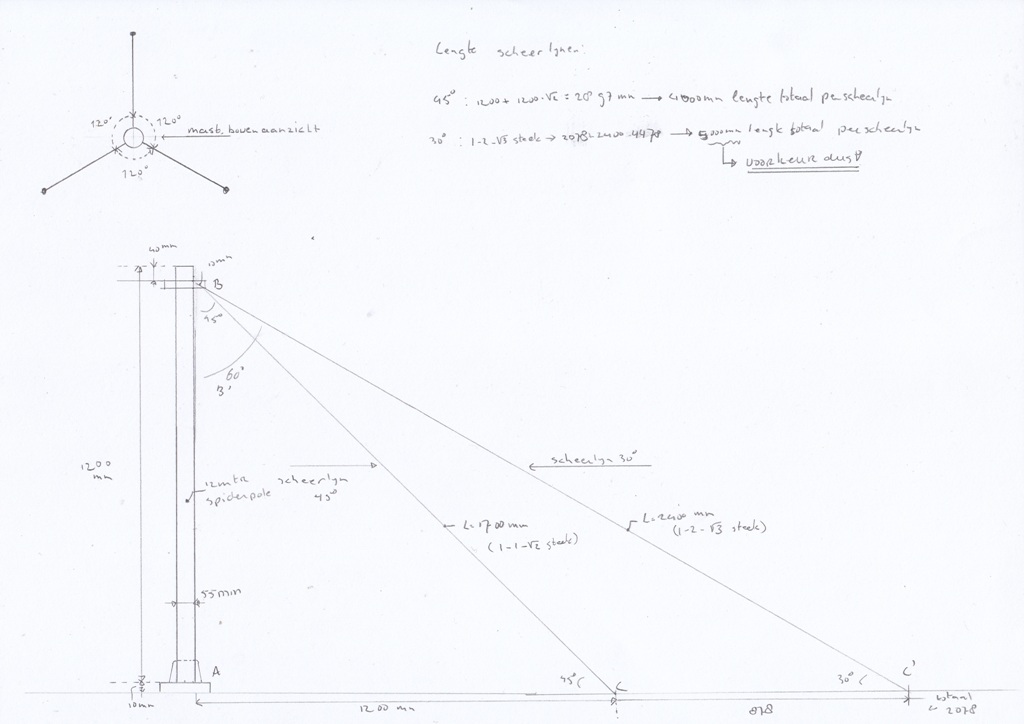 Lengte scheerlijnen:
45° : 1200 + 1200·√2 = 2897 mm → 4000mm lengte totaal per scheerlijn
30° : 1-2-√3 steek → 2078+2400=4478 → 5000mm lengte totaal per scheerlijn
voorkeur dus!
120° 120°
mast bovenaanzicht
120°
40mm
10mm
B
45°
60°
B'
1200
mm
scheerlijn 30°
12mtr
spiderpole
scheerlijn
45°
L=1700 mm
(1-1-√2 steek)
L=2400 mm
(1-2-√3 steek)
55mm
A
45°
C
30°
C'
10mm
1200 mm
878
totaal
2078